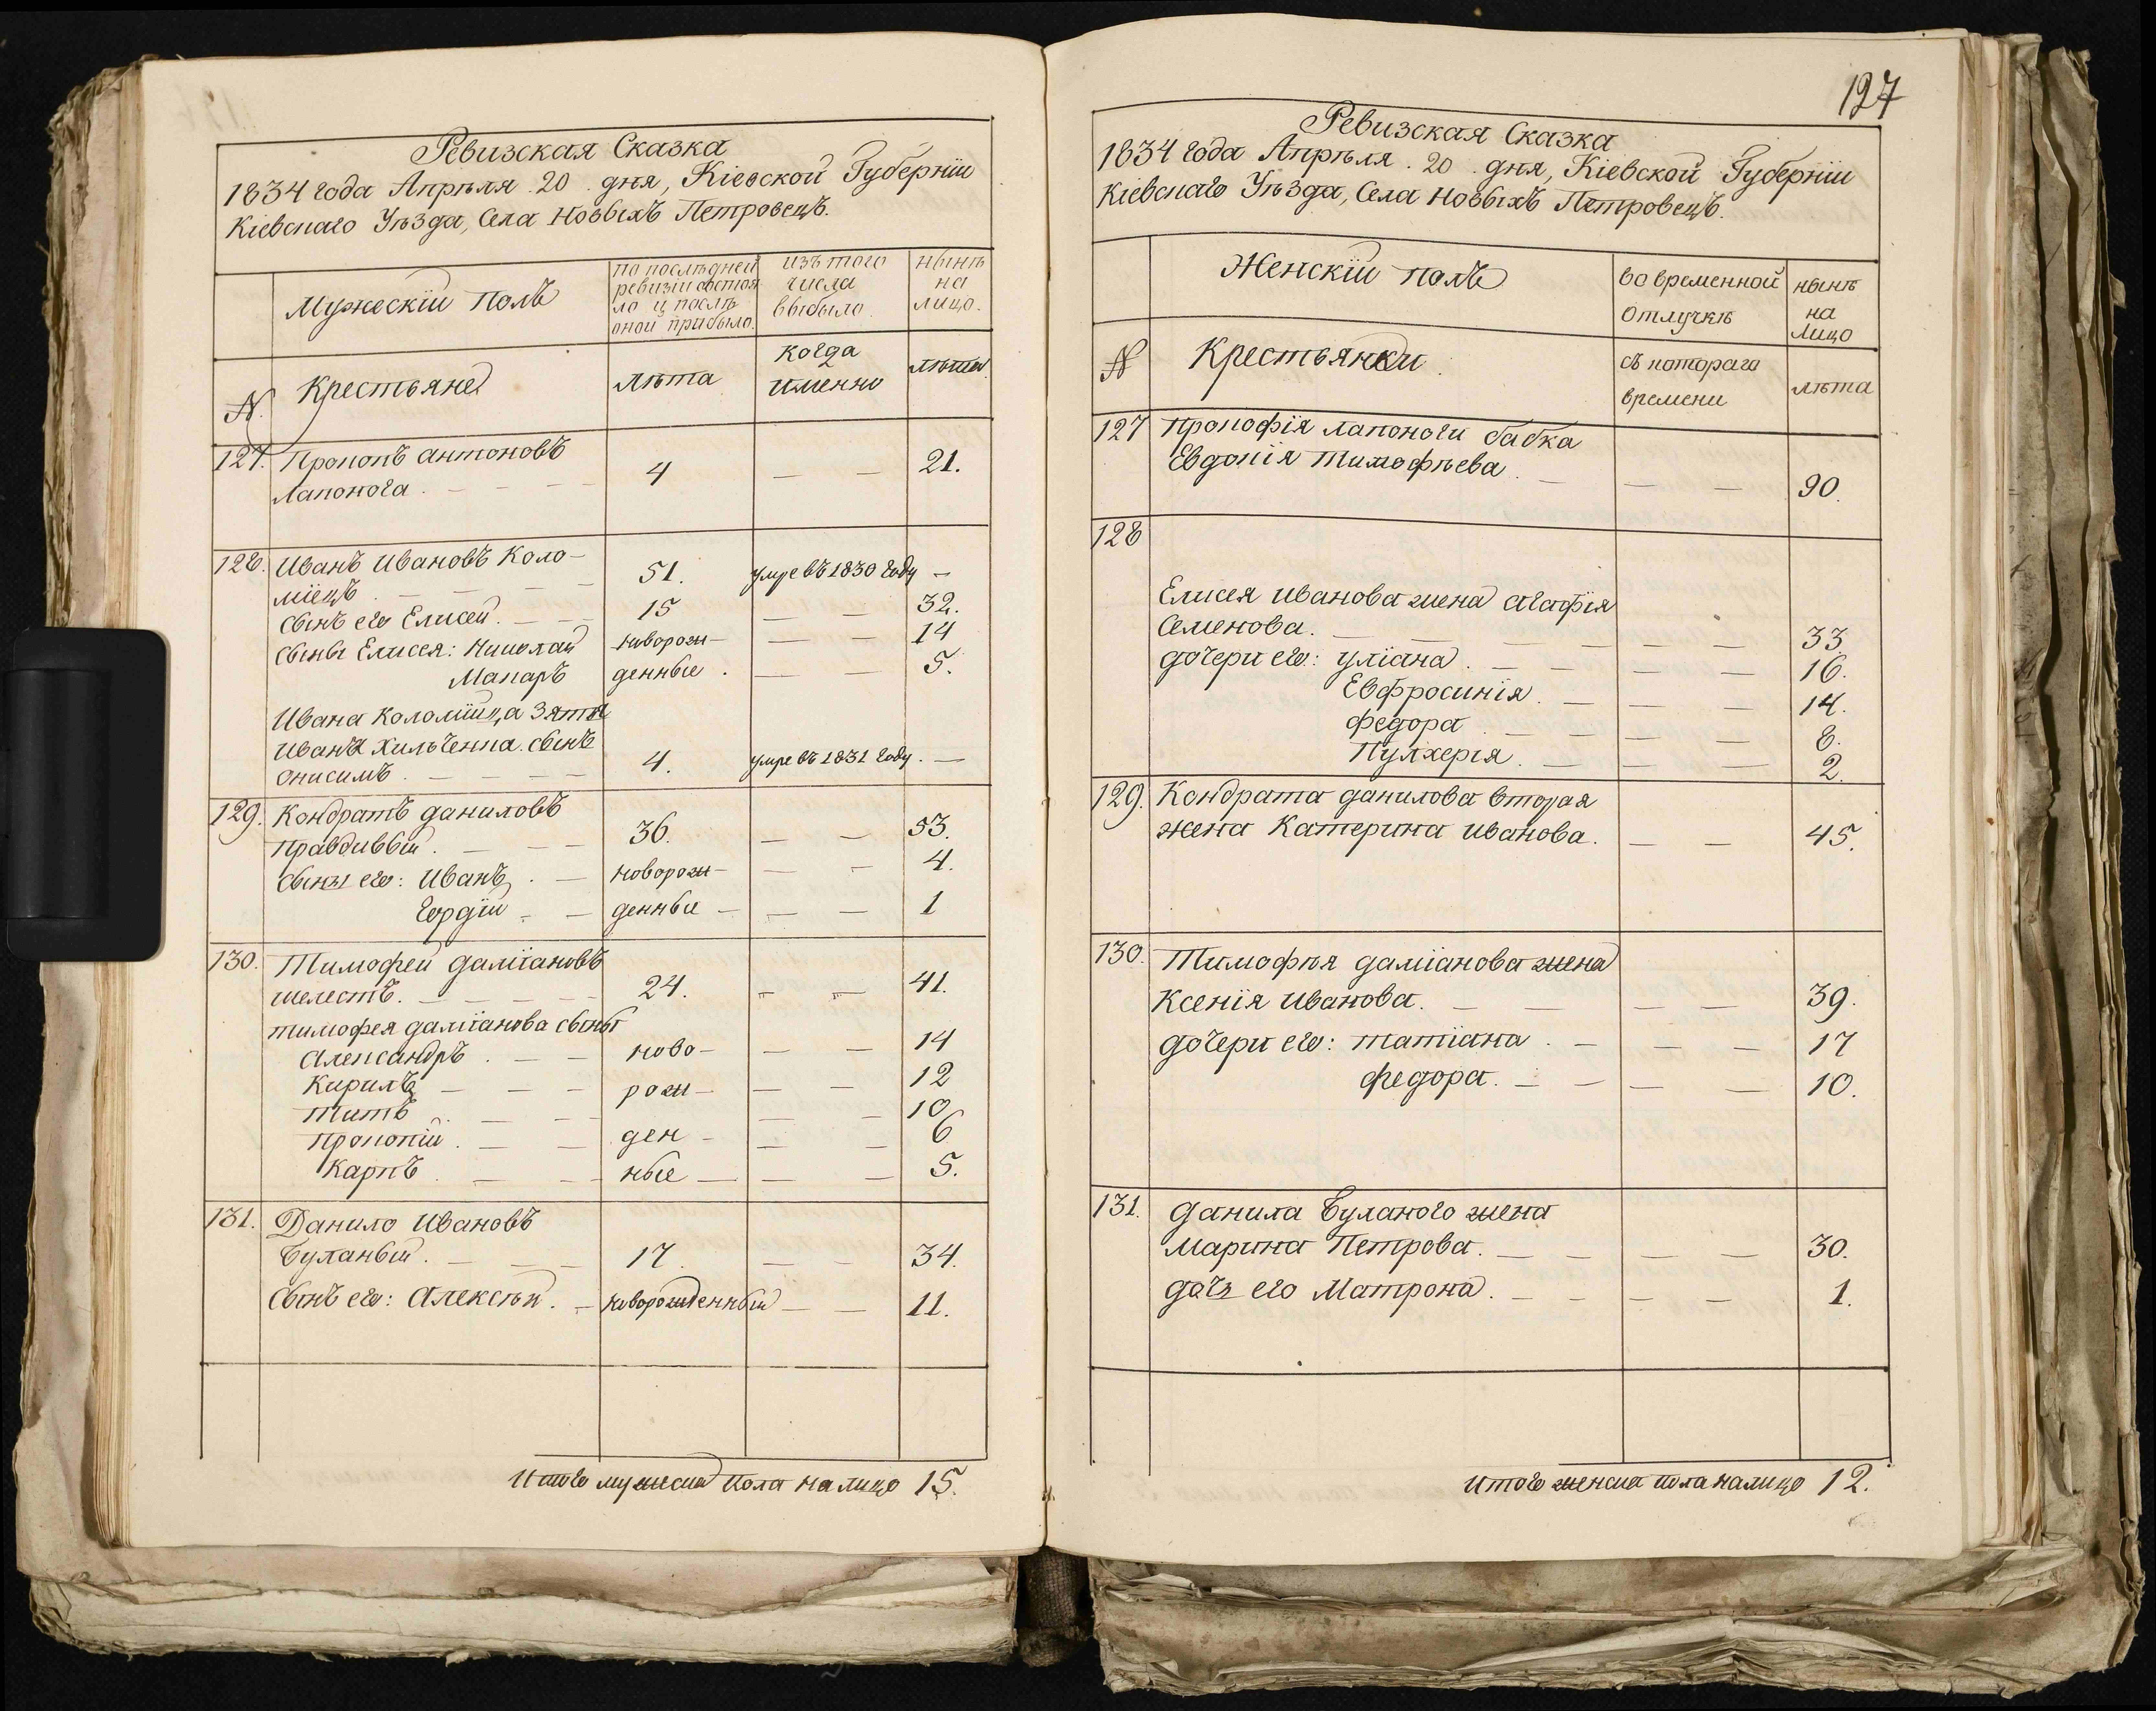 Ревизская Сказка
1834 года Апрѣля 20 дня, Кіевской Губерніи
Кіевскаго Уѣзда, Села Новыхъ Петровецъ.
Мужескій полъ
по послѣдней
ревизіи состоя
ло и послѣ
оной прибыло.
изъ того
числа
выбыло.
нынѣ
на
лицо.
N.
Крестьяне
лѣта
когда
именно
лѣта
127. Прокопъ Антоновъ
Лапонога. 4 — — 21.
128. Иванъ Ивановъ Коло-
міецъ. 51. умре въ 1830 году —
сынъ его Елисей. 15 — — 32.
сыны Елисея: Николай новорож- — — 14
Макаръ денные. — — 5.
Ивана Коломійца зятя
Ивана Хильченка. сынъ
Онисимъ. 4. умре въ 1831 году. —
129. Кондратъ Даниловъ
Правдивый. 36. — — 53.
сыны его: Иванъ. — новорож- — — 4.
Гордій — денные — — — 1
130. Тимофей Даміановъ
Шелестъ. 24. — — 41.
Тимофея Даміанова сыны
Александръ. ново- — — 14
Кирилъ рож- — — 12
Титъ — — 10
Прокопій. ден- — — 6
Карпъ. ные — — — 5.
131. Данило Ивановъ
Буланый. 17. — — 34.
Сынъ его: Алексѣй. — новорожденный — — 11.
Итого мужеска пола на лицо 15.
127
Ревизская Сказка
1834 года Апрѣля. 20. дня, Кіевской Губерніи
Кіевскаго Уѣзда, Села Новыхъ Петровецъ.
Женскій полъ
во временной
отлучкѣ
нынѣ
на
лицо
N
Крестьянки
съ котораго
времени
лѣта
127 Прокофія Лапоноги бабка
Евдокія Тимофѣева. — — — 90.
128
Елисея Иванова жена Агафія
Семенова. — — — — 33.
дочери его: Уліана. — — — — 16.
Евфросинія. — — — 14.
Федора — — — 8.
Пулхерія. — — — 2.
129. Кондрата Данилова вторая
жена Катерина Иванова. — — 45.
130. Тимофѣя Даміанова жена
Ксенія Иванова. — — — — 39.
дочери его: Татіана. — — — 17
Федора. — — — — 10.
131. Данила Буланого жена
Марина Петрова. — — — — 30.
дочь его Матрона. — — — — 1.
Итого женска пола на лицо 12.